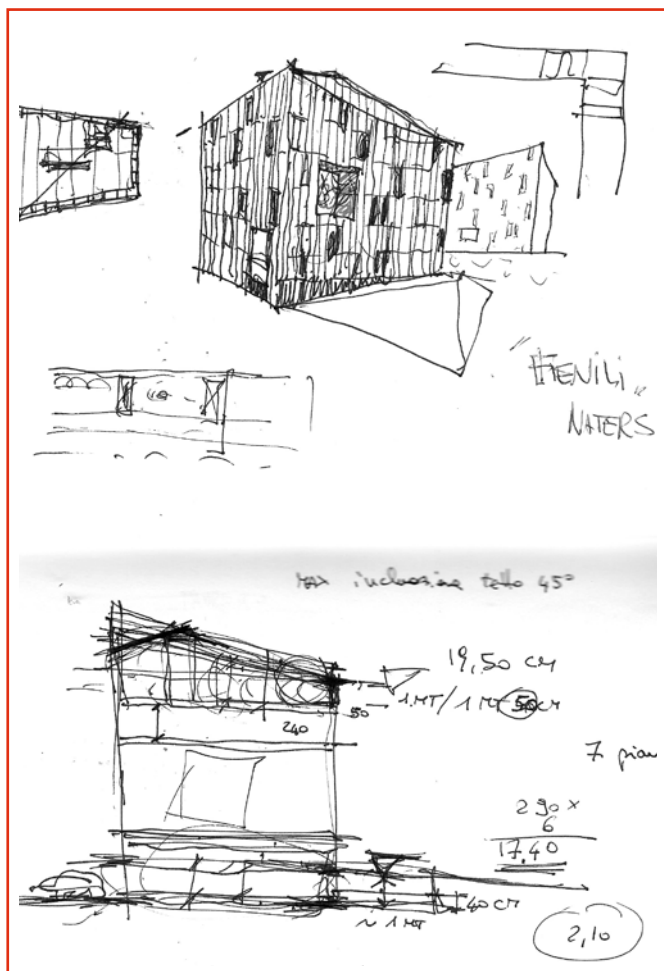 "FIENILI"
NATERS
MAX inclinazione tetto 45°
19,50 cm
50 → 1 MT / 1 MT 50 cm
240
7 pian
290 ×
6
17,40
40 cm
~ 1 MT
2,10